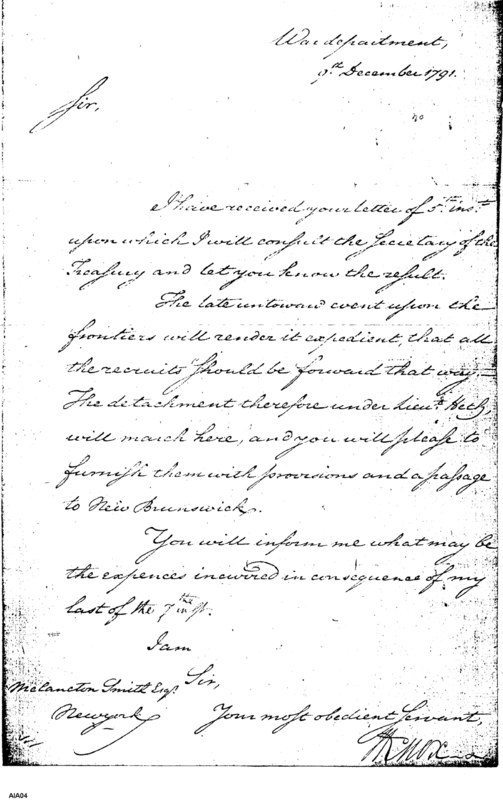 War department,
9.th December 1791.
Sir,
I have received your letter of 5.th ins.t
upon which I will consult the Secretary of the
Treasury and let you know the result.
The late untoward event upon the
frontiers will render it expedient, that all
the recruits should be forward that way.—
The detachment therefore under Lieu.t
will march here, and you will please to
furnish them with provisions and a passage
to New Brunswick.
You will inform me what may be
the expences incurred in consequence of my
last of the 7.th inst.
I am
Sir,
Melancton Smith Esq.r
Newyork
Your most obedient Servant,
HKnox
AIA04